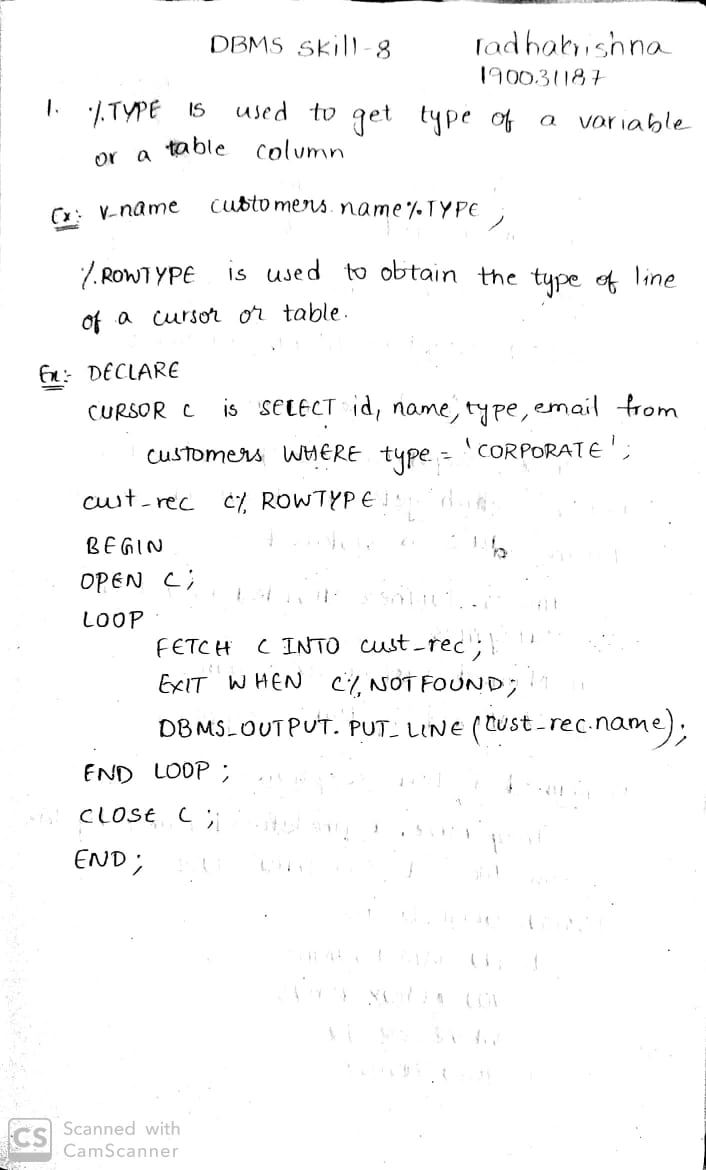 DBMS Skill-8 radhakrishna
190031187
1. %TYPE is used to get type of a variable
or a table column
Ex:- v-name customers.name%TYPE;
%ROWTYPE is used to obtain the type of line
of a cursor or table.
Ex:- DECLARE
CURSOR C is SELECT id, name, type, email from
customers WHERE type = 'CORPORATE';
cust-rec c% ROWTYPE;
BEGIN
OPEN C;
LOOP
FETCH C INTO cust-rec;
EXIT WHEN C% NOTFOUND;
DBMS_OUTPUT. PUT_LINE (cust-rec.name);
END LOOP;
CLOSE C;
END;
CS Scanned with
CamScanner